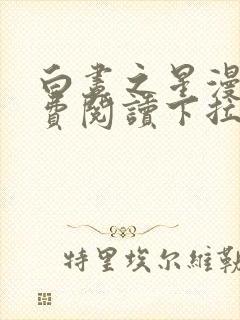 白晝之星漫
費閱讀下拉
特里埃尔維勒